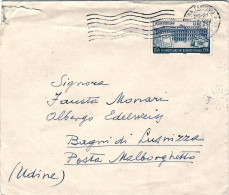 Signora
Fausta Monari
Albergo Edelweiss
Bagni di Lusnizza
Posta Malborghetto
(Udine)